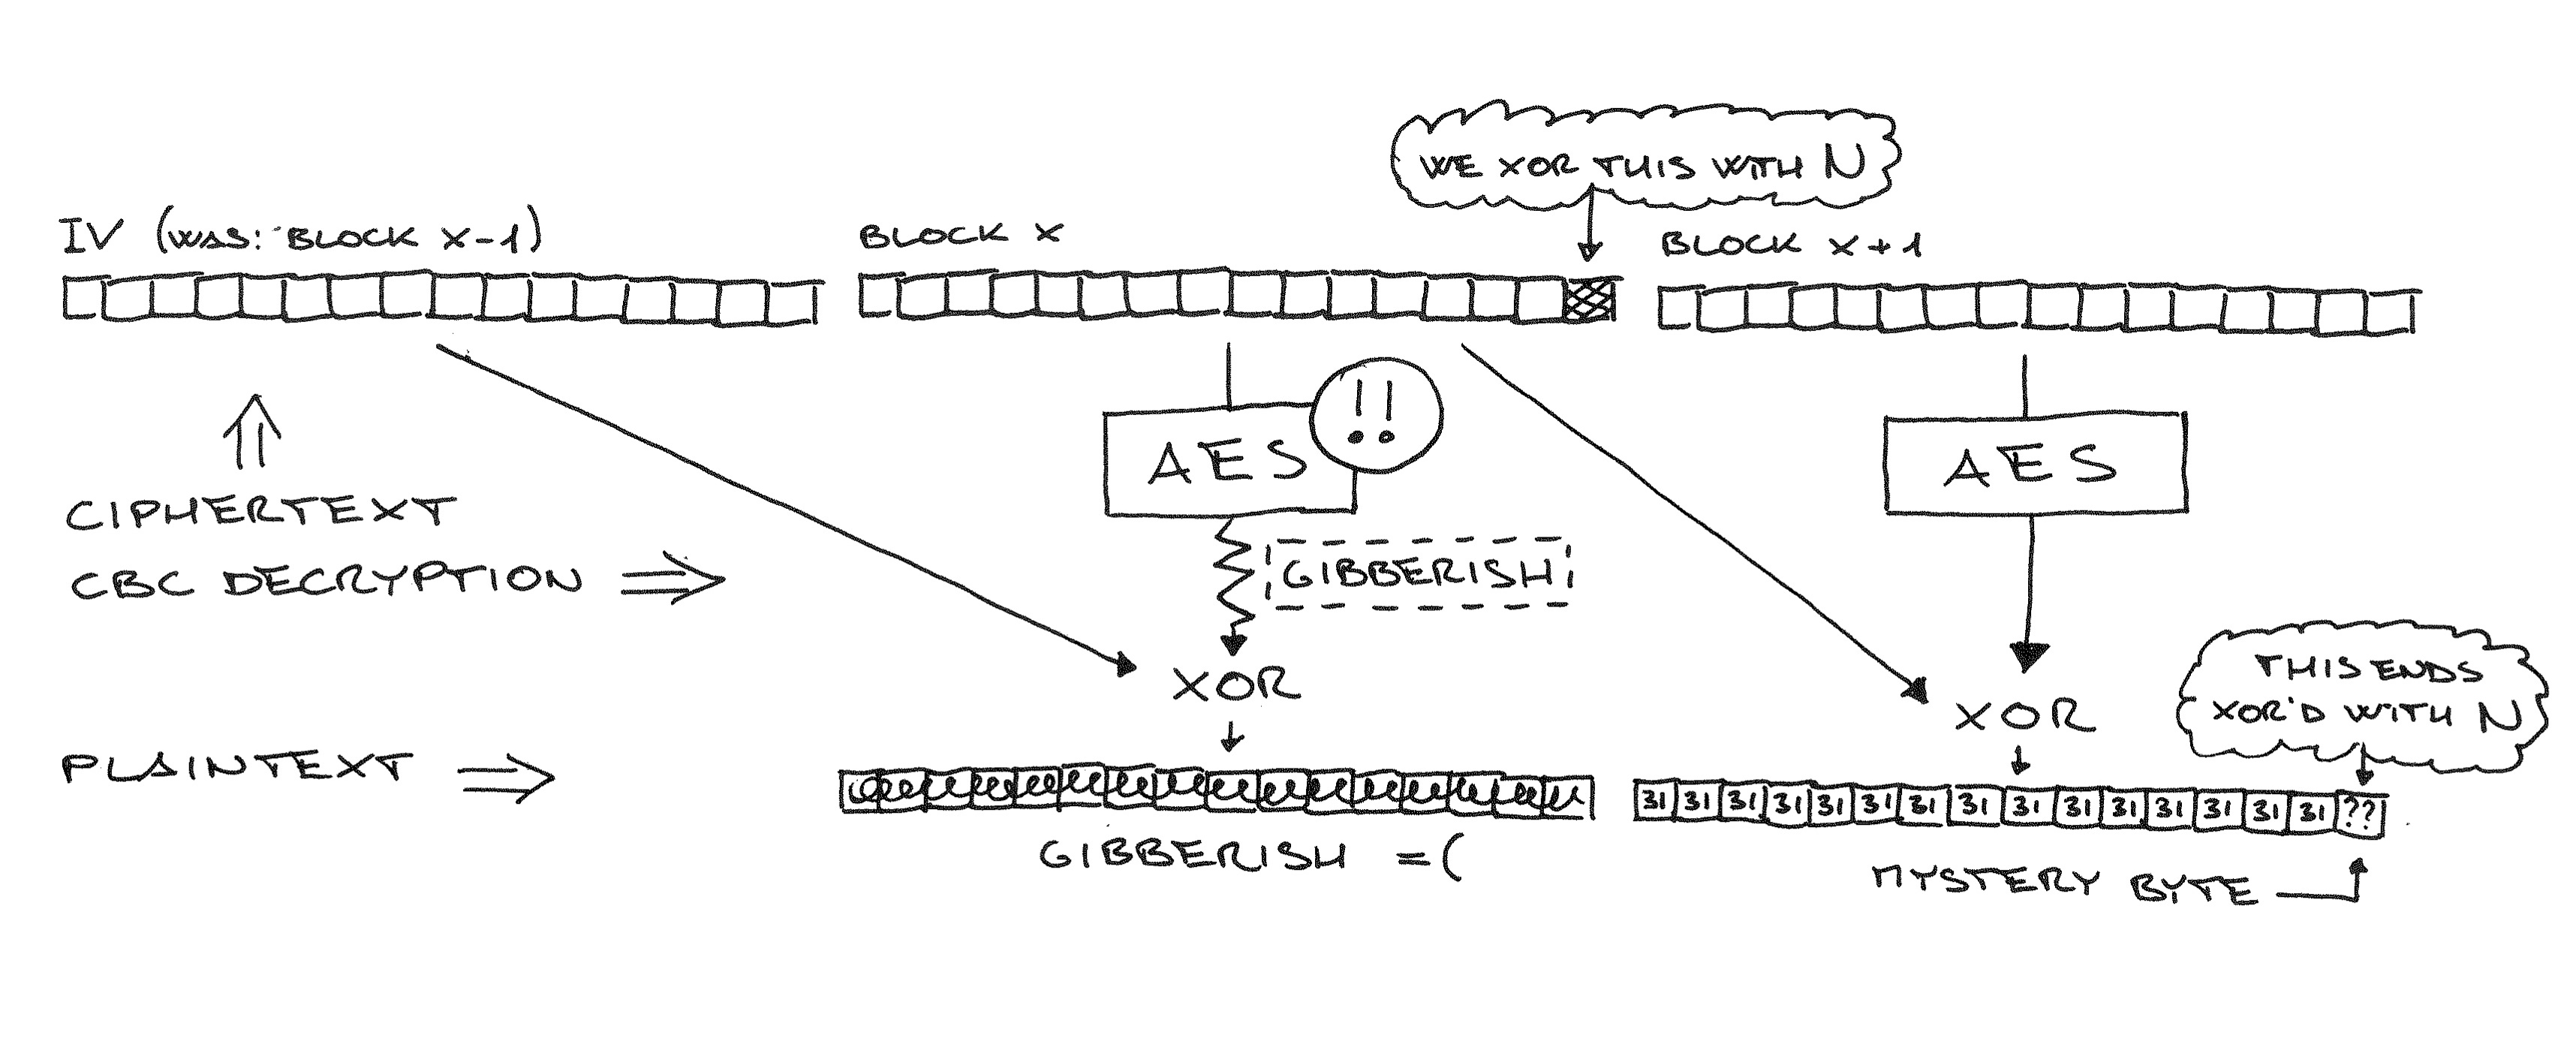 WE XOR THIS WITH N
IV (WAS: BLOCK X-1)
BLOCK X
BLOCK X+1
!!
AES
AES
CIPHERTEXT
CBC DECRYPTION
GIBBERISH
XOR
XOR
THIS ENDS
XOR'D WITH N
PLAINTEXT
31 31 31 31 31 31 31 31 31 31 31 31 31 31 31 ??
GIBBERISH =(
MYSTERY BYTE